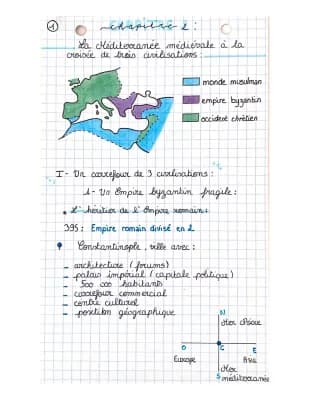 1
chapitre 2 :
La Méditerranée médiévale à la
croisée de trois civilisations :
monde musulman
empire byzantin
occident chrétien
I - Un carrefour de 3 civilisations :
1 - Un Empire byzantin fragile :
• L'héritier de l'Empire romain :
395 : Empire romain divisé en 2
Constantinople, ville avec :
- architecture (forums)
- palais impérial (capitale politique)
- 500 000 habitants
- carrefour commercial
- centre culturel
- position géographique
N
Mer Noire
O C E
Europe Asie
Mer
S méditerranée